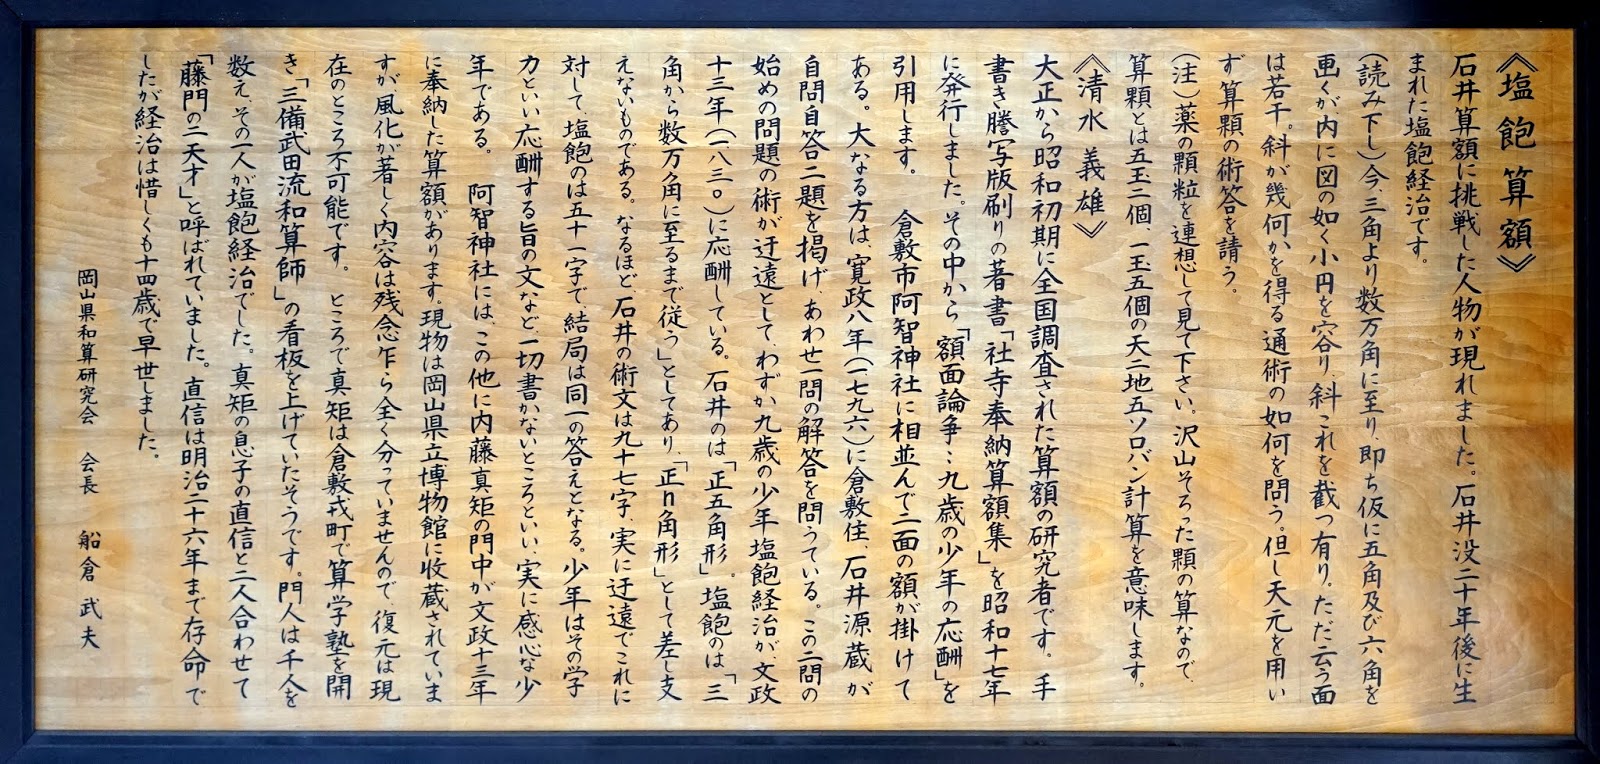 《塩飽算額》
石井算額に挑戦した人物が現れました。石井没二十年後に生
まれた塩飽経治です。
(読み下し)今、三角より数万角に至り、即ち仮に五角及び六角を
画くが内に図の如く小円を容り、斜これを截つ有り。ただ云う面
は若干。斜が幾何かを得る通術の如何を問う。但し天元を用い
ず算顆の術答を請う。
(注)薬の顆粒を連想して見て下さい。沢山そろった顆の算なので、
算顆とは五玉二個、一玉五個の天二地五ソロバン計算を意味します。
《清水 義雄》
大正から昭和初期に全国調査された算額の研究者です。 手
書き謄写版刷りの著書「社寺奉納算額集」を昭和十七年
に発行しました。その中から「額面論争…九歳の少年の応酬」を
引用します。 倉敷市阿智神社に相並んで二面の額が掛けて
ある。大なる方は、寛政八年(一七九六)に倉敷住、石井源蔵が
自問自答二題を掲げ、あわせ一問の解答を問うている。この二問の
始めの問題の術が迂遠として、わずか九歳の少年塩飽経治が、文政
十三年(一八三〇)に応酬している。石井のは「正五角形」。塩飽のは、「三
角から数万角に至るまで従う」としてあり、「正n角形」として差し支
えないものである。なるほど、石井の術文は九十七字、実に迂遠でこれに
対して、塩飽のは五十一字で、結局は同一の答えとなる。少年はその学
力といい応酬する旨の文など、一切書かないところといい、実に感心な少
年である。 阿智神社には、この他に内藤真矩の門中が文政十三年
に奉納した算額があります。現物は岡山県立博物館に収蔵されていま
すが、風化が著しく内容は残念乍ら全く分っていませんので、復元は現
在のところ不可能です。 ところで真矩は倉敷戎町で算学塾を開
き「三備武田流和算師」の看板を上げていたそうです。門人は千人を
数え、その一人が塩飽経治でした。真矩の息子の直信と二人合わせて
「藤門の二天才」と呼ばれていました。直信は明治二十六年まで存命で
したが経治は惜しくも十四歳で早世しました。
岡山県和算研究会 会長 船倉武夫